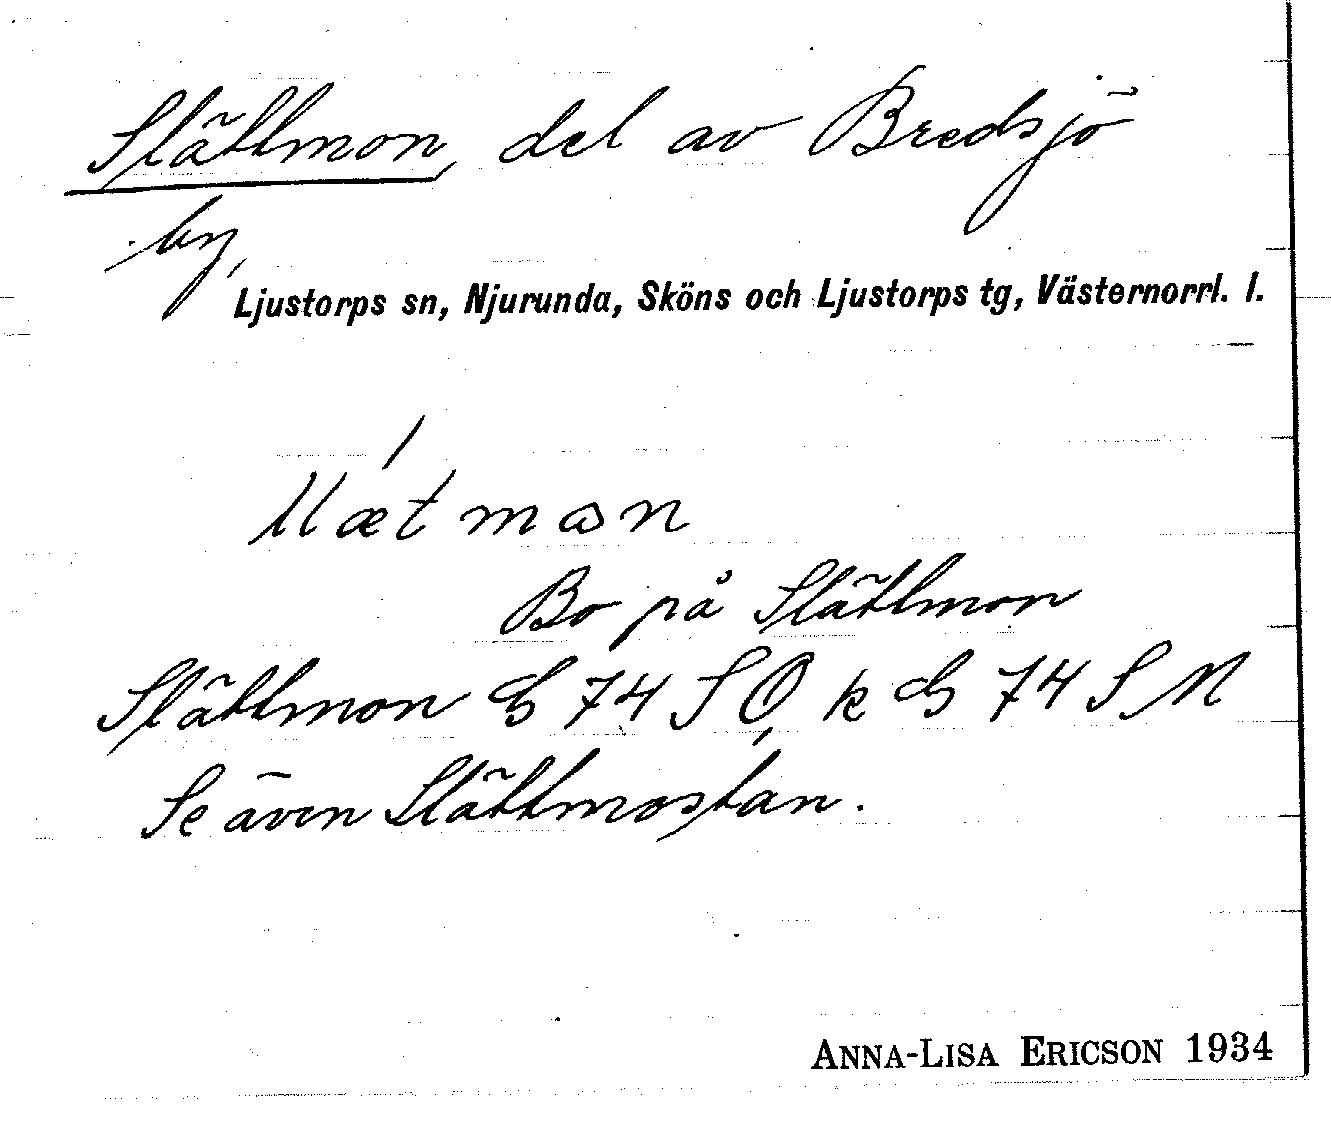 Slättmon, del av Bredsjö
by,
Ljustorps sn, Njurunda, Sköns och Ljustorps tg, Västernorrl. l.
Bo på Slättmon
Slättmon G 74 SO, k G 74 SN
Se även Slättmostan.
ANNA-LISA ERICSON 1934